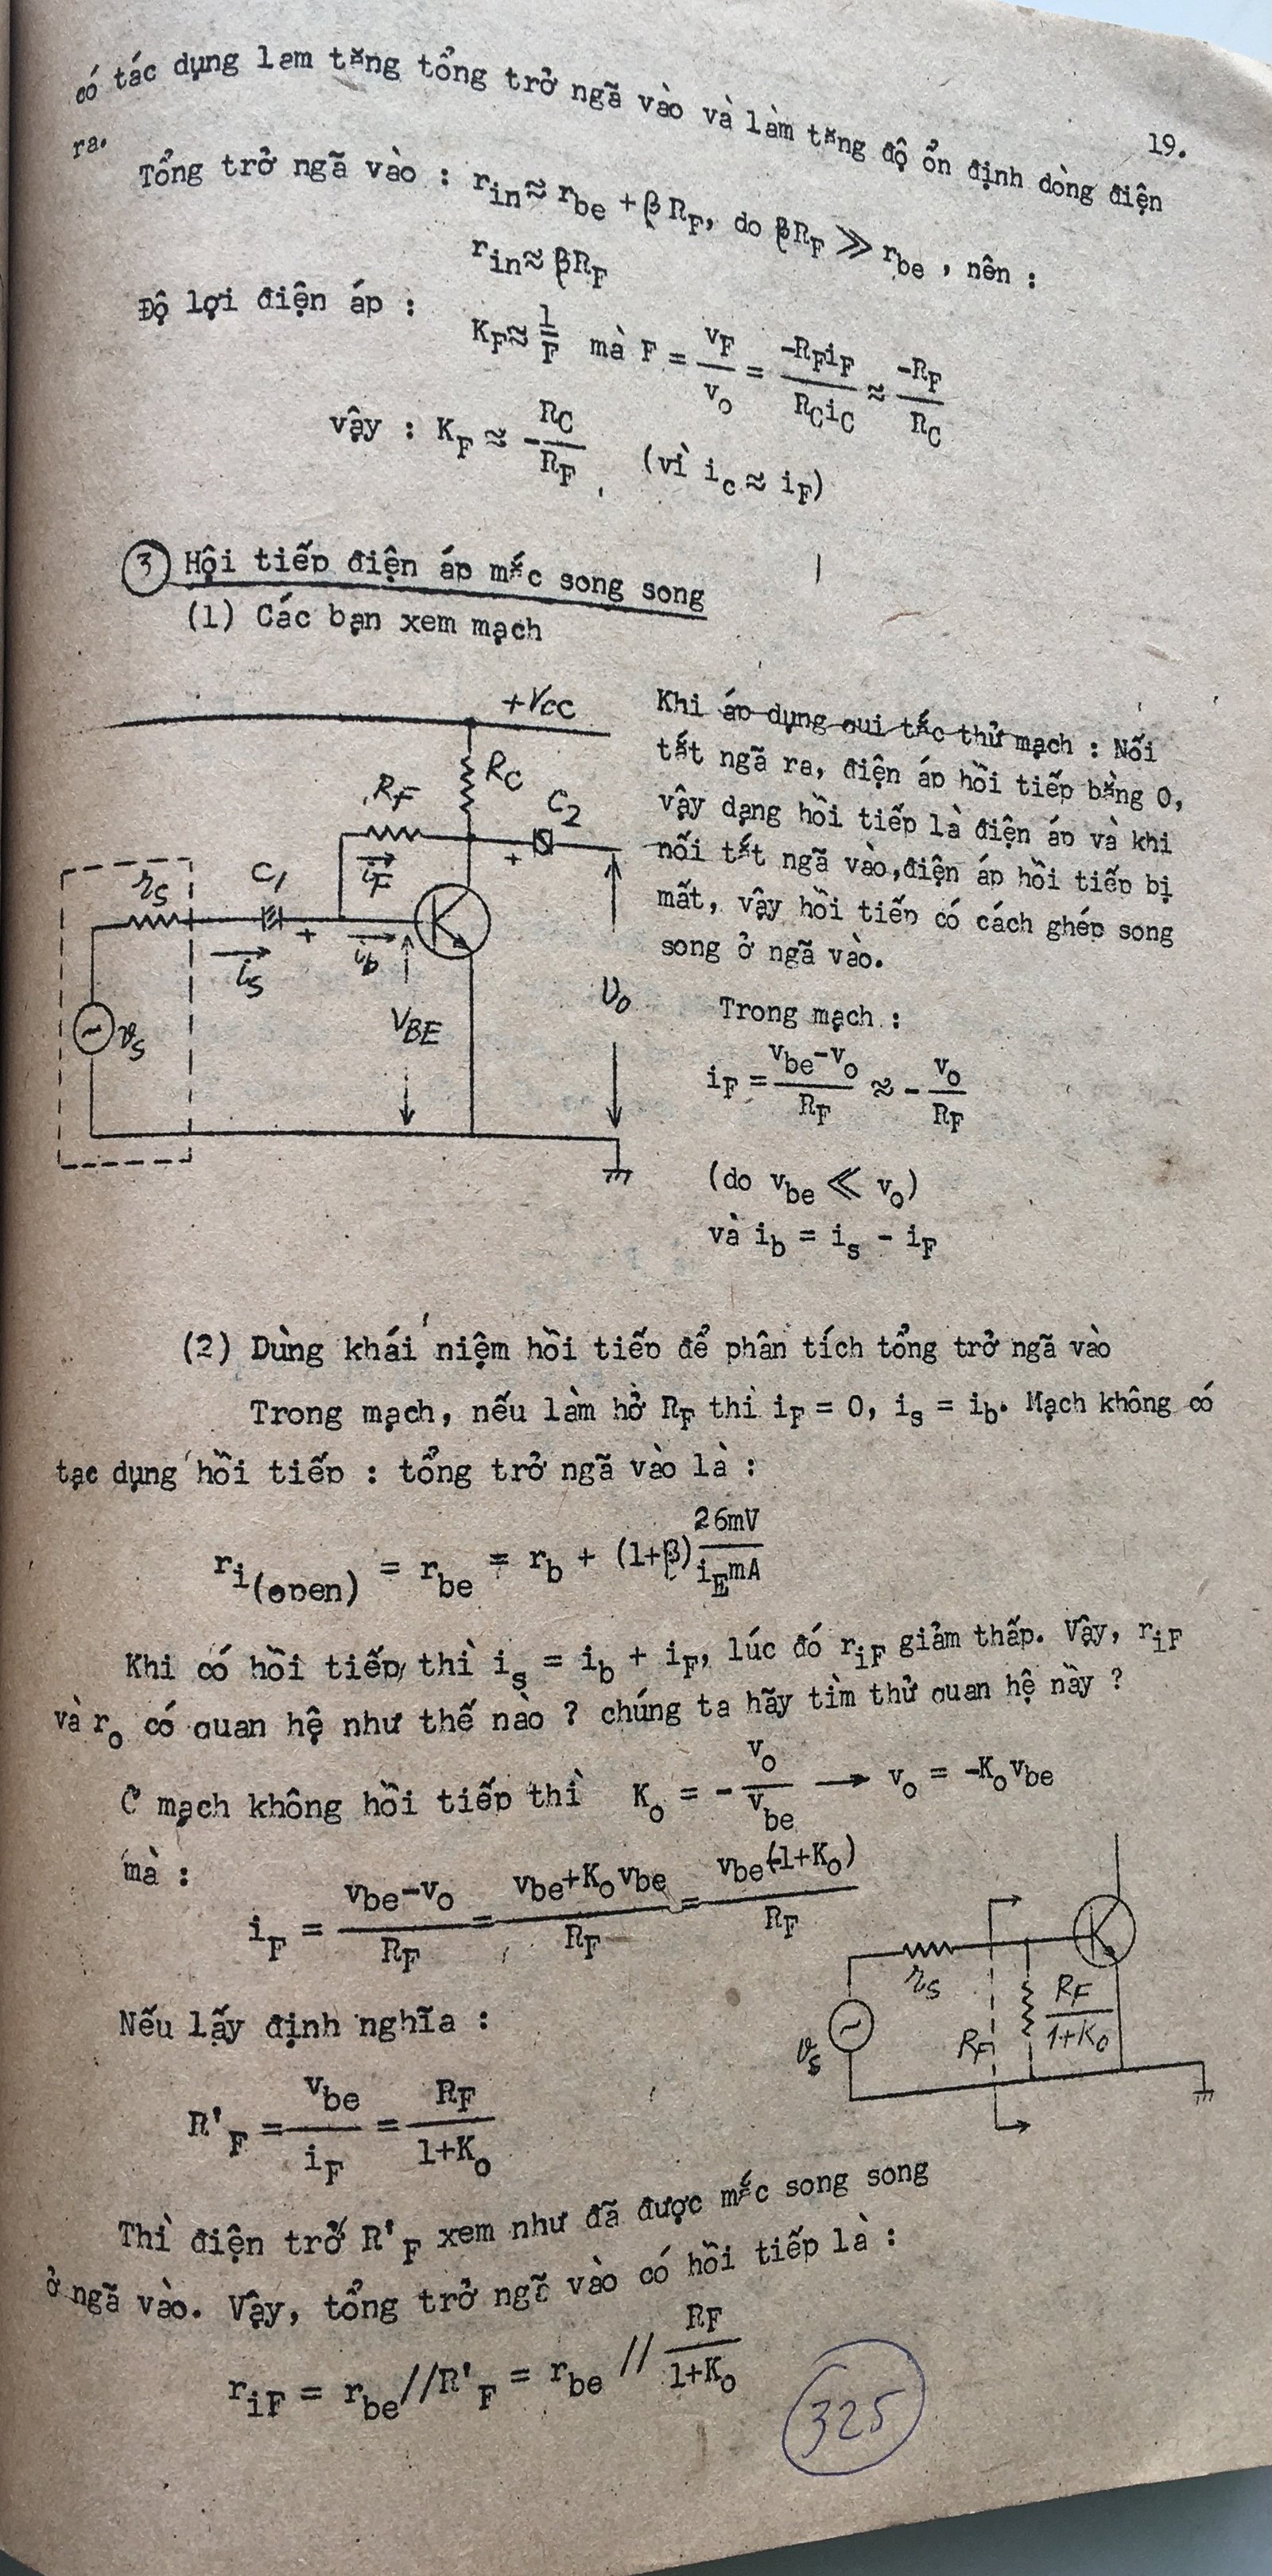 có tác dụng làm tăng tổng trở ngã vào và làm tăng độ ổn định dòng điện
19.
ra.
Tổng trở ngã vào : r_in ≈ r_be + βR_F, do βR_F ≫ r_be , nên :
r_in ≈ βR_F
Độ lợi điện áp :
K_F ≈ 1/F mà F = v_F/v_o = -R_F i_F/R_C i_C ≈ -R_F/R_C
vậy : K_F ≈ -R_C/R_F (vì i_c ≈ i_F)
3 Hội tiếp điện áp mắc song song
(1) Các bạn xem mạch
+VCC
RC
RF
C2
+
iF
rS
C1
+
iS
ib
VBE
vS
υo
Khi áp dụng qui tắc thử mạch : Nối
tắt ngã ra, điện áp hồi tiếp bằng 0,
vậy dạng hồi tiếp là điện áp và khi
nối tắt ngã vào,điện áp hồi tiếp bị
mất, vậy hồi tiếp có cách ghép song
song ở ngã vào.
Trong mạch :
i_F = (v_be-v_o)/R_F ≈ - v_o/R_F
(do v_be ≪ v_o)
và i_b = i_s - i_F
(2) Dùng khái niệm hồi tiếp để phân tích tổng trở ngã vào
Trong mạch, nếu làm hở R_F thì i_F = 0, i_s = i_b. Mạch không có
tạc dụng hồi tiếp : tổng trở ngã vào là :
r_i(open) = r_be = r_b + (1+β) 26mV/i_E mA
Khi có hồi tiếp, thì i_s = i_b + i_F, lúc đó r_iF giảm thấp. Vậy, r_iF
và r_o có quan hệ như thế nào ? chúng ta hãy tìm thử quan hệ nầy ?
Ở mạch không hồi tiếp thì K_o = - v_o/v_be → v_o = -K_o v_be
mà :
i_F = (v_be-v_o)/R_F = (v_be+K_o v_be)/R_F = v_be(1+K_o)/R_F
rS
vS
RF
RF/1+Ko
Nếu lấy định nghĩa :
R'_F = v_be/i_F = R_F/1+K_o
Thì điện trở R'_F xem như đã được mắc song song
ở ngã vào. Vậy, tổng trở ngã vào có hồi tiếp là :
r_iF = r_be//R'_F = r_be // R_F/1+K_o
325